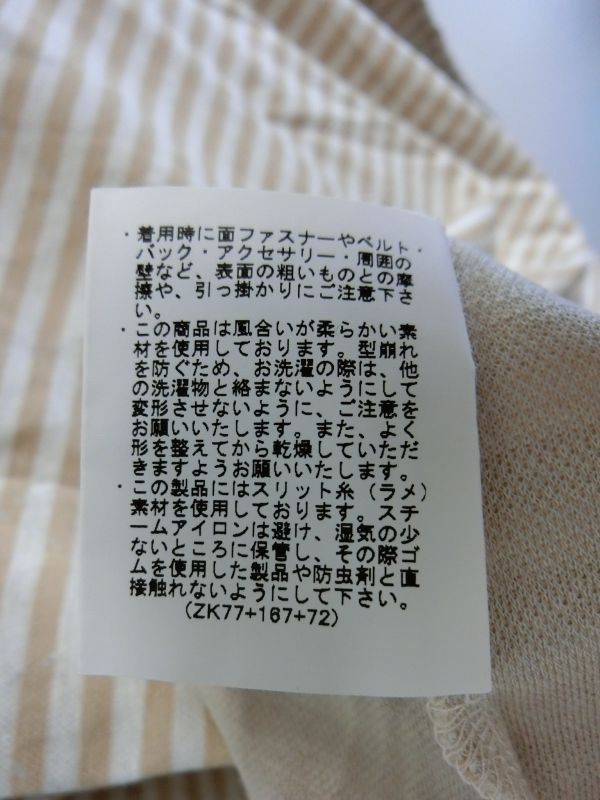 ・着用時に面ファスナーやベルト・
バック・アクセサリー・周囲の
壁など、表面の粗いものとの摩
擦や、引っ掛かりにご注意下さ
い。
・この商品は風合いが柔らかい素
材を使用しております。型崩れ
を防ぐため、お洗濯の際は、他
の洗濯物と絡まないようにして
変形させないように、ご注意を
お願いいたします。また、よく
形を整えてから乾燥していただ
きますようお願いいたします。
・この製品にはスリット糸（ラメ）
素材を使用しております。スチ
ームアイロンは避け、湿気の少
ないところに保管し、その際ゴ
ムを使用した製品や防虫剤と直
接触れないようにして下さい。
(ZK77+167+72)